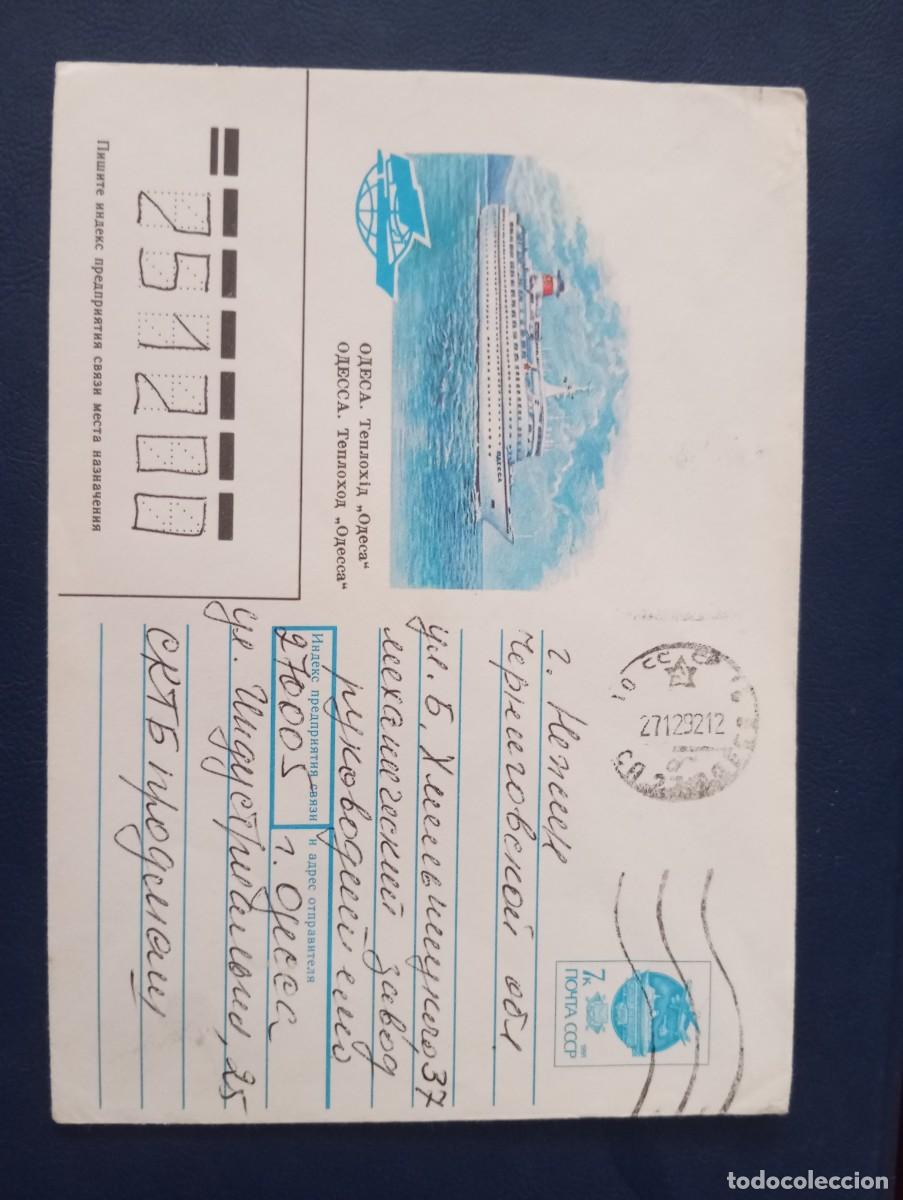 ОДЕСА. Теплохід „Одеса“
ОДЕССА. Теплоход „Одесса“
ОДЕССА
27129212
7к
ПОЧТА СССР
1991
г. Нежин
Черниговской обл.
ул. Б. Хмельницкого, 37
механический завод
руководителю
Индекс предприятия связи и адрес отправителя
27005 г. Одесса
ул. Индустриальная, 25
СКТБ продмаш
251200
Пишите индекс предприятия связи места назначения
todocoleccion